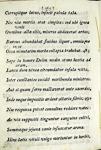 Corrupitque lacus, infecit pabula tabo.
Nec via mortis erat simplex: sed ubi ignea venis
Omnibus acta sitis, miseros adduxerat artus;
Rursus abundabat fluidus liquor, omniaque in se
Ossa minutatim morbo collapsa trahebat.
Sæpe in honore Deûm medio stans hostia ad aram,
Lanea dum nivea circumdatur infula vitta,
Inter cunctantes cecidit moribunda ministros.
Aut si quam ferro mactaverat ante sacerdos,
Inde neque impositis ardent altaria fibris,
Nec responsa potest consultus reddere vates:
Ac vix suppositi tinguntur sanguine cultri,
Summaque jejuna sanie infuscatur arena.
Hinc lætis vituli vulgo moriuntur in herbis,